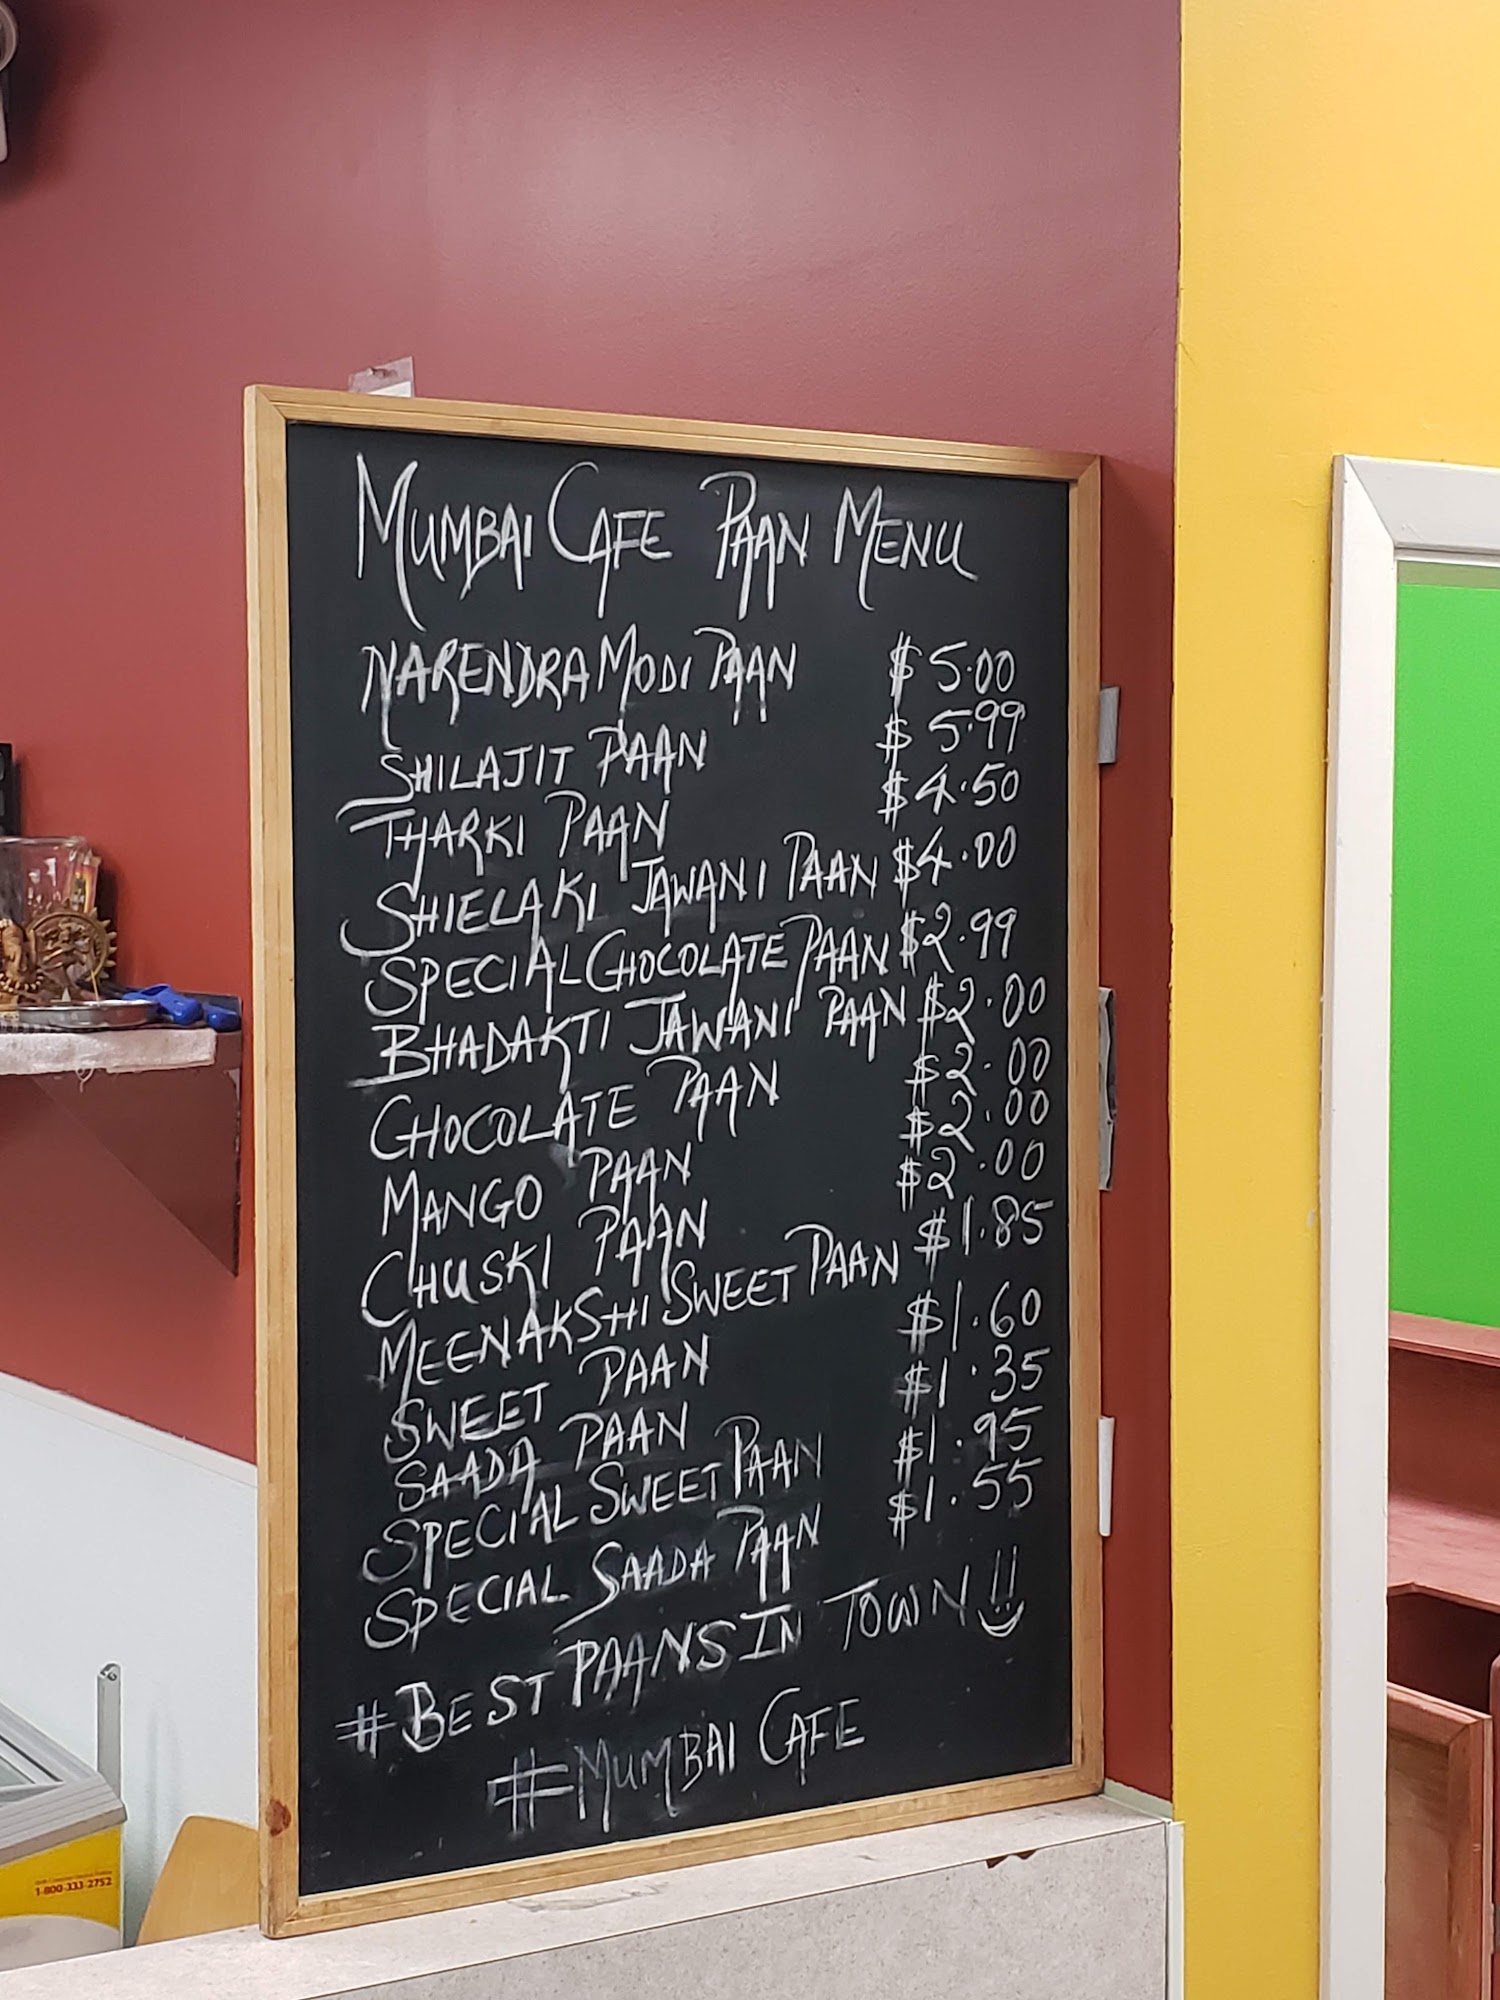 MUMBAI CAFE PAAN MENU
NARENDRA MODI PAAN $5.00
SHILAJIT PAAN $5.99
THARKI PAAN $4.50
SHIELA KI JAWANI PAAN $4.00
SPECIAL CHOCOLATE PAAN $2.99
BHADAKTI JAWANI PAAN $2.00
CHOCOLATE PAAN $2.00
MANGO PAAN $2.00
CHUSKI PAAN $2.00
MEENAKSHI SWEET PAAN $1.85
SWEET PAAN $1.60
SAADA PAAN $1.35
SPECIAL SWEET PAAN $1.95
SPECIAL SAADA PAAN $1.55
#BEST PAANS IN TOWN!!
#MUMBAI CAFE
1-800-333-2752